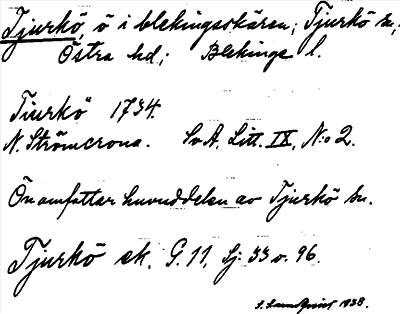 Tjurkö, ö i blekingeskären; Tjurkö sn,
Östra hd; Blekinge l.
Tiurkö 1734.
N. Strömcrona. SvA, Litt. IX, N:o 2.
Ön omfattar huvuddelen av Tjurkö sn.
Tjurkö sk. G. 11, Sj: 33 o. 96.
1938.